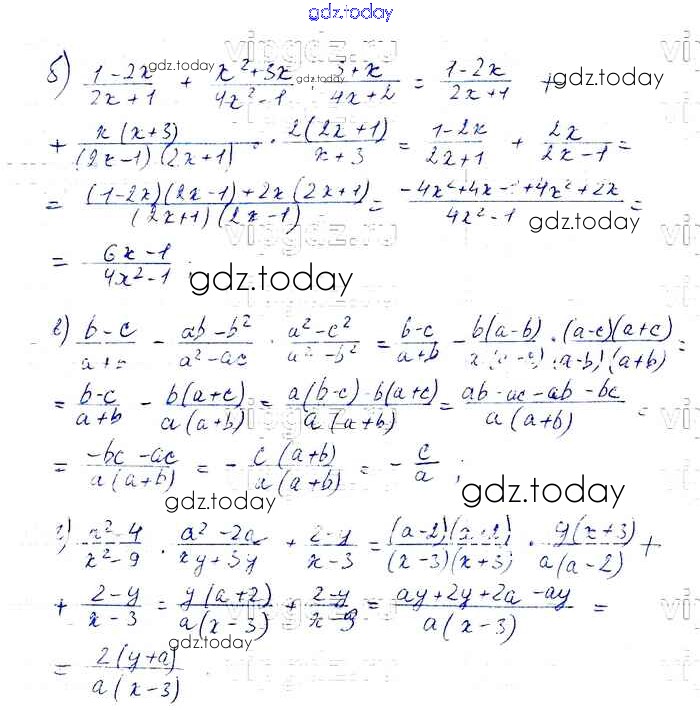 gdz.today
б) (1-2x)/(2x+1) + (x²+3x)/(4x²-1) : (3+x)/(4x+2) = (1-2x)/(2x+1) +
+ x(x+3)/((2x-1)(2x+1)) · 2(2x+1)/(x+3) = (1-2x)/(2x+1) + 2x/(2x-1) =
= ((1-2x)(2x-1)+2x(2x+1))/((2x+1)(2x-1)) = (-4x²+4x-1+4x²+2x)/(4x²-1) =
= (6x-1)/(4x²-1);
gdz.today
в) (b-c)/(a+b) - (ab-b²)/(a²-ac) · (a²-c²)/(a²-b²) = (b-c)/(a+b) - b(a-b)/(a(a-c)) · (a-c)(a+c)/((a-b)(a+b)) =
= (b-c)/(a+b) - b(a+c)/(a(a+b)) = (a(b-c)-b(a+c))/(a(a+b)) = (ab-ac-ab-bc)/(a(a+b)) =
= (-bc-ac)/(a(a+b)) = - c(a+b)/(a(a+b)) = - c/a;
gdz.today
г) (a²-4)/(x²-9) : (a²-2a)/(xy+3y) + (2-y)/(x-3) = (a-2)(a+2)/((x-3)(x+3)) · y(x+3)/(a(a-2)) +
+ (2-y)/(x-3) = y(a+2)/(a(x-3)) + (2-y)/(x-3) = (ay+2y+2a-ay)/(a(x-3)) =
= 2(y+a)/(a(x-3))
gdz.today